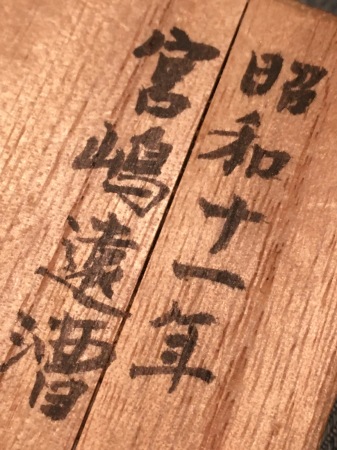 昭和十一年
宮嶋遠漕